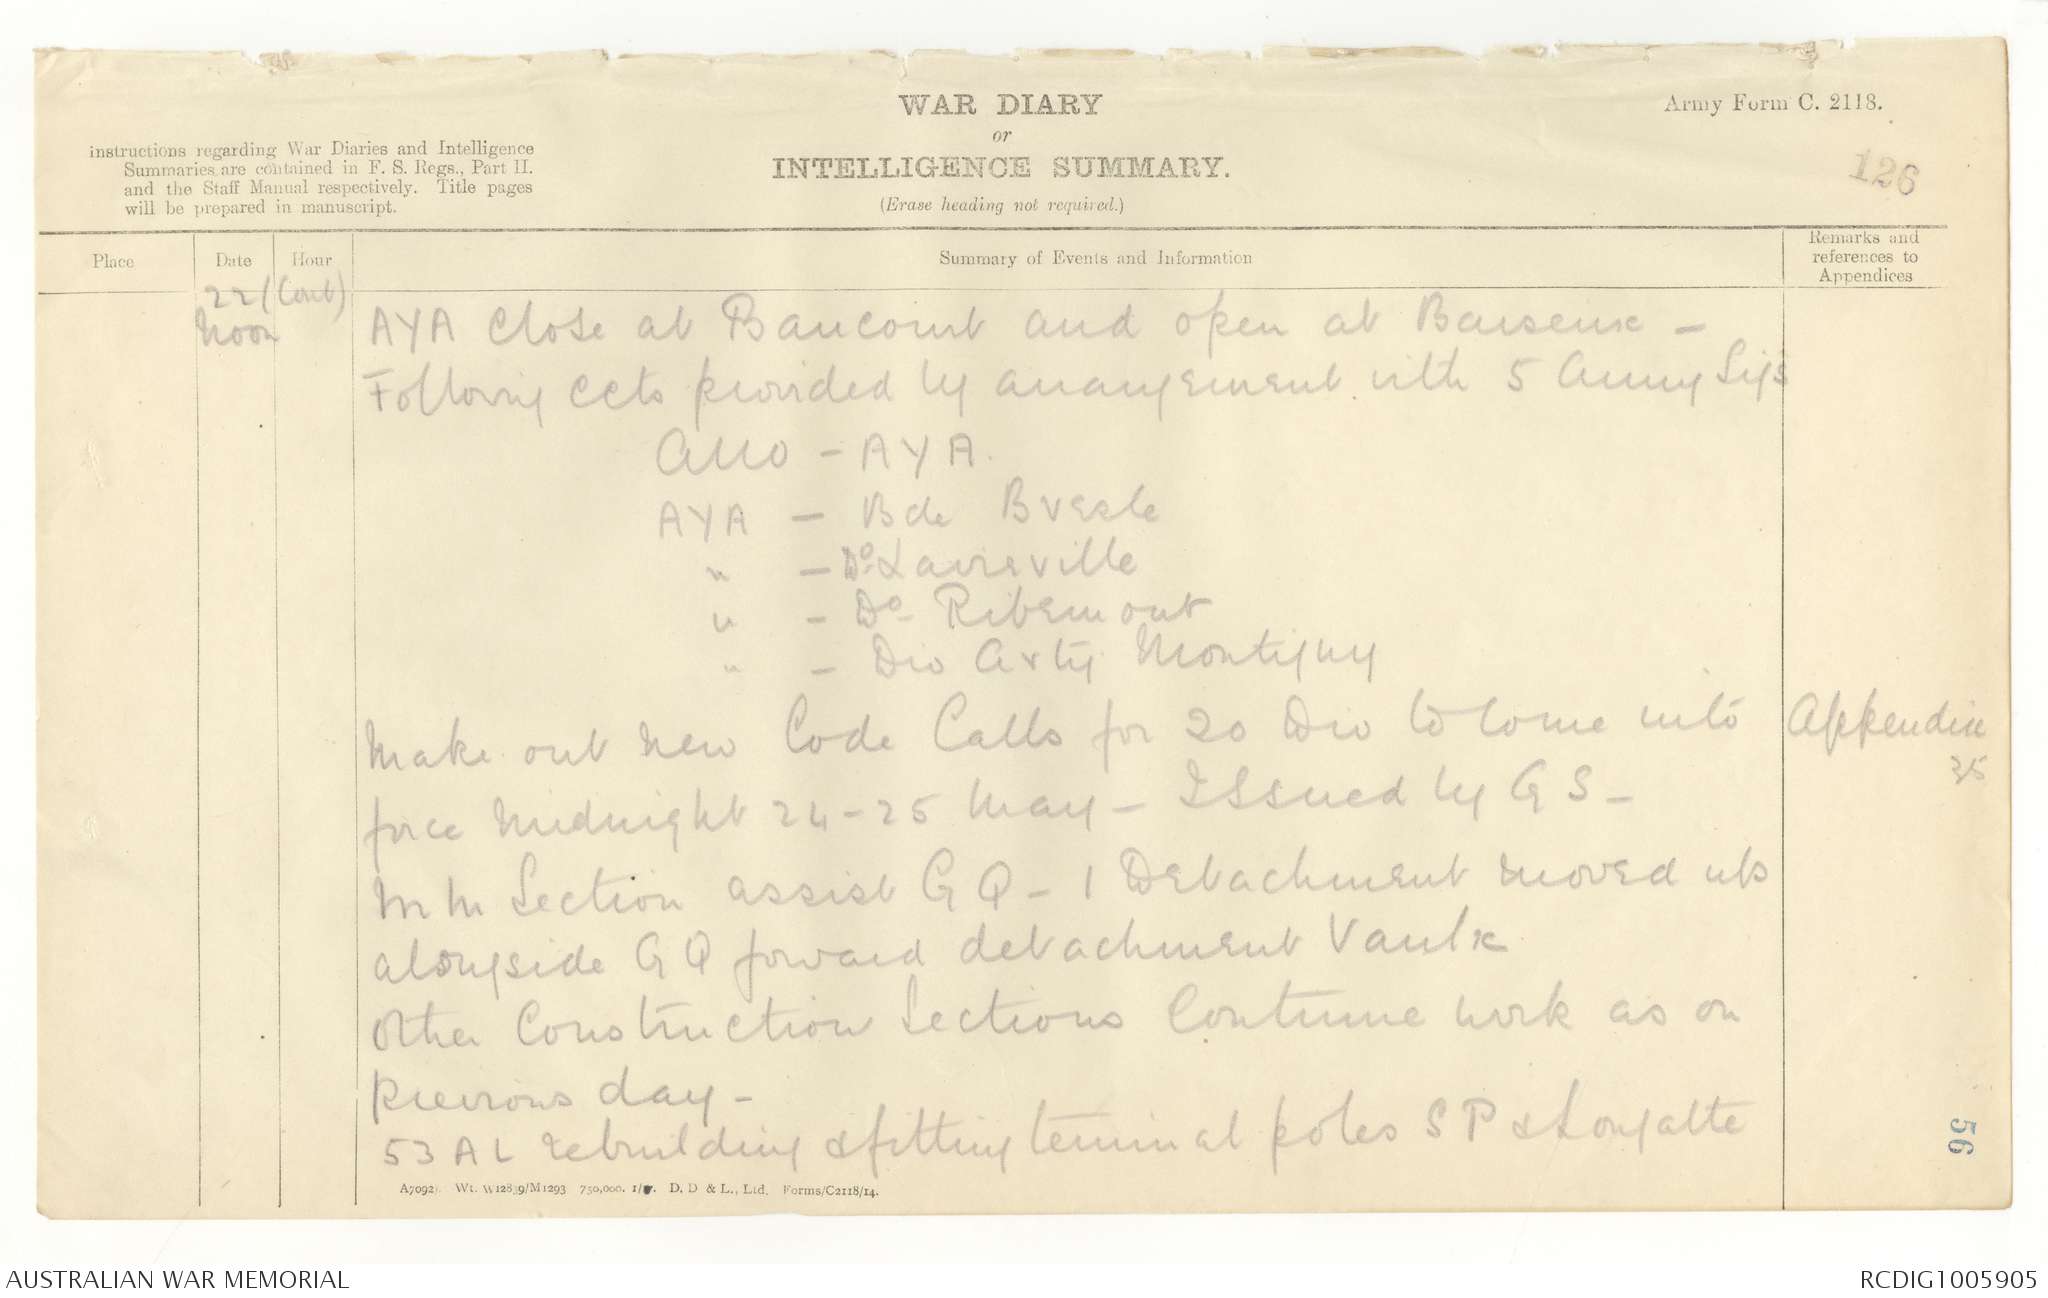 WAR DIARY
or
INTELLIGENCE SUMMARY.
(Erase heading not required.)
Army Form C. 2118.
126
instructions regarding War Diaries and Intelligence
Summaries are contained in F. S. Regs., Part II.
and the Staff Manual respectively. Title pages
will be prepared in manuscript.
Place
Date
Hour
Summary of Events and Information
Remarks and
references to
Appendices
22 (Cont)
Noon
AYA close at Bancourt and open at Baiseux -
Following ccts provided by arrangement with 5 Army Sigs
- AYA.
AYA - Bde Bresle
" - Do Lavieville
" - Do Ribemont
" - Div Arty Montigny
Make out new Code Calls for 20 Div to come into
force midnight 24-25 May - Issued by GS -
Appendix
35
MM Section assist GQ - 1 Detachment moved up
alongside GQ forward detachment Vaulx
Other Construction Sections continue work as on
previous day -
53 AL rebuilding & fitting terminal poles SP & Longatte
A7092). Wt. W12839/M1293 750,000. 1/17. D. D & L., Ltd. Forms/C2118/14.
56
AUSTRALIAN WAR MEMORIAL
RCDIG1005905